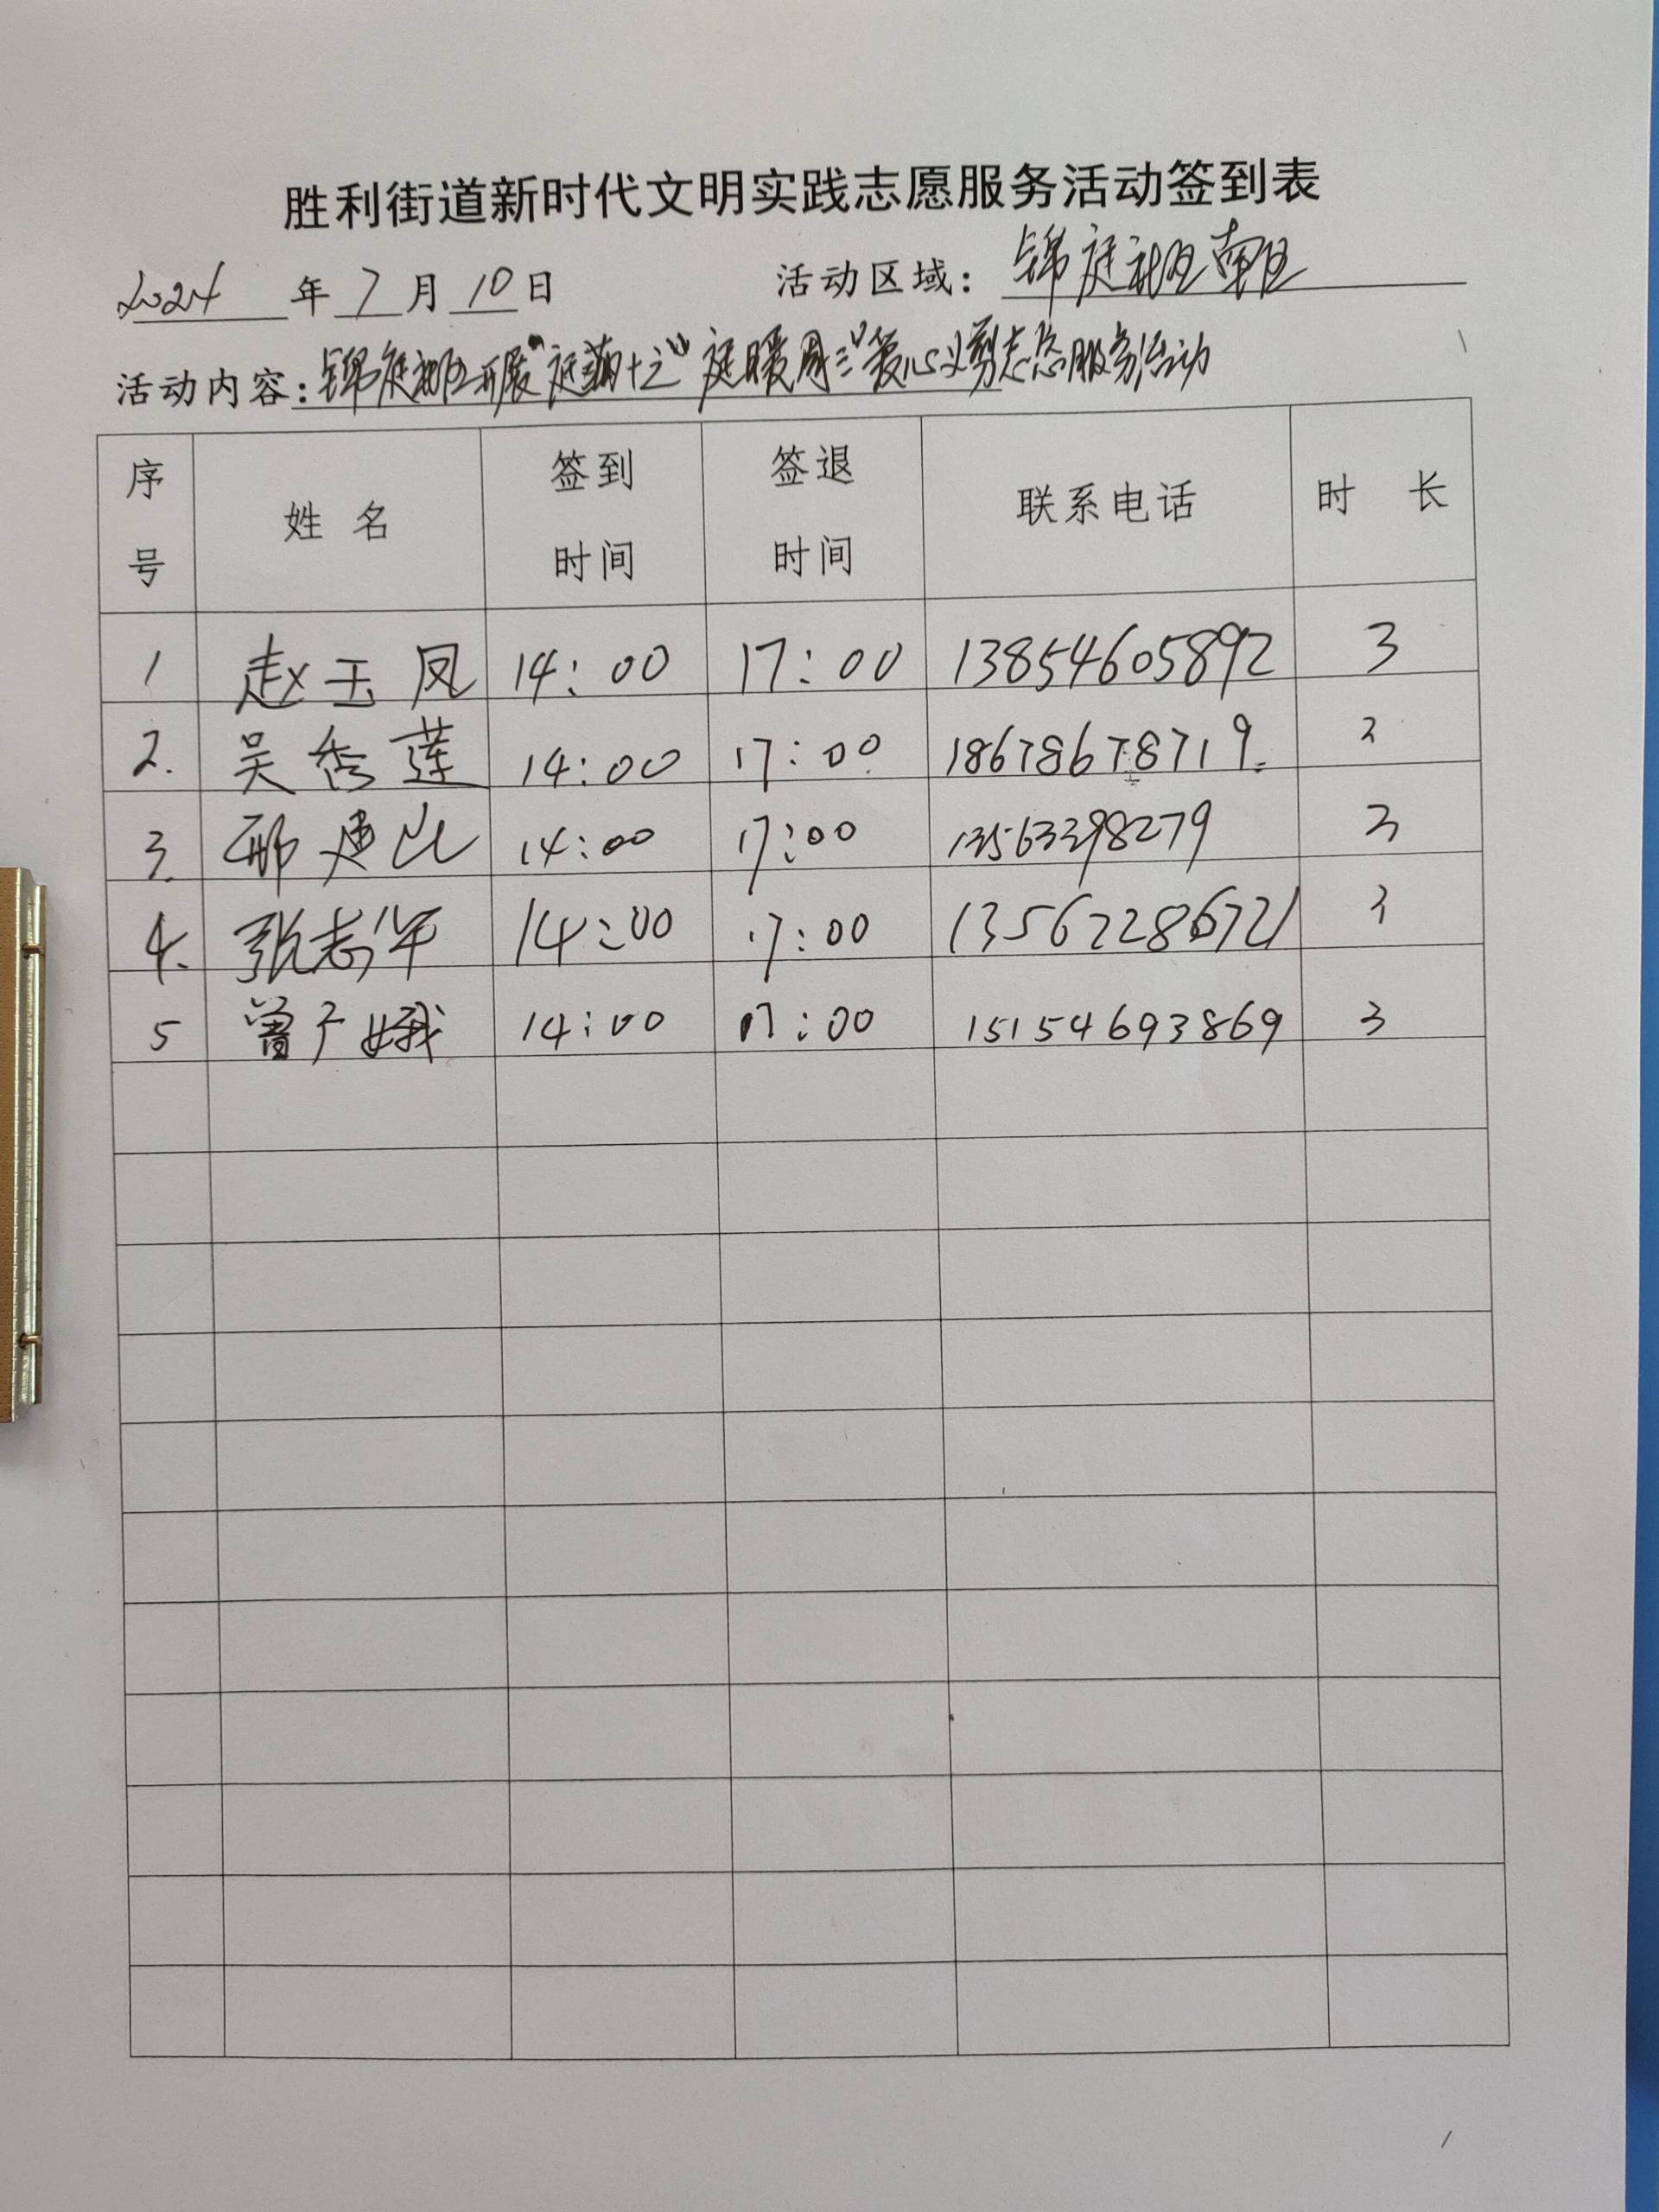 胜利街道新时代文明实践志愿服务活动签到表
2024 年 7 月 10 日 活动区域: 锦庭社区南区
活动内容: 锦庭社区开展"庭 十之"庭暖周三"爱心义剪志愿服务活动
序号 姓名 签到时间 签退时间 联系电话 时长
1 赵玉凤 14:00 17:00 13854605892 3
2. 吴秀莲 14:00 17:00 18678678719. 3
3. 邢建山 14:00 17:00 13563398279 3
4. 张志华 14:00 17:00 13562286721 3
5 曾广娥 14:00 17:00 15154693869 3